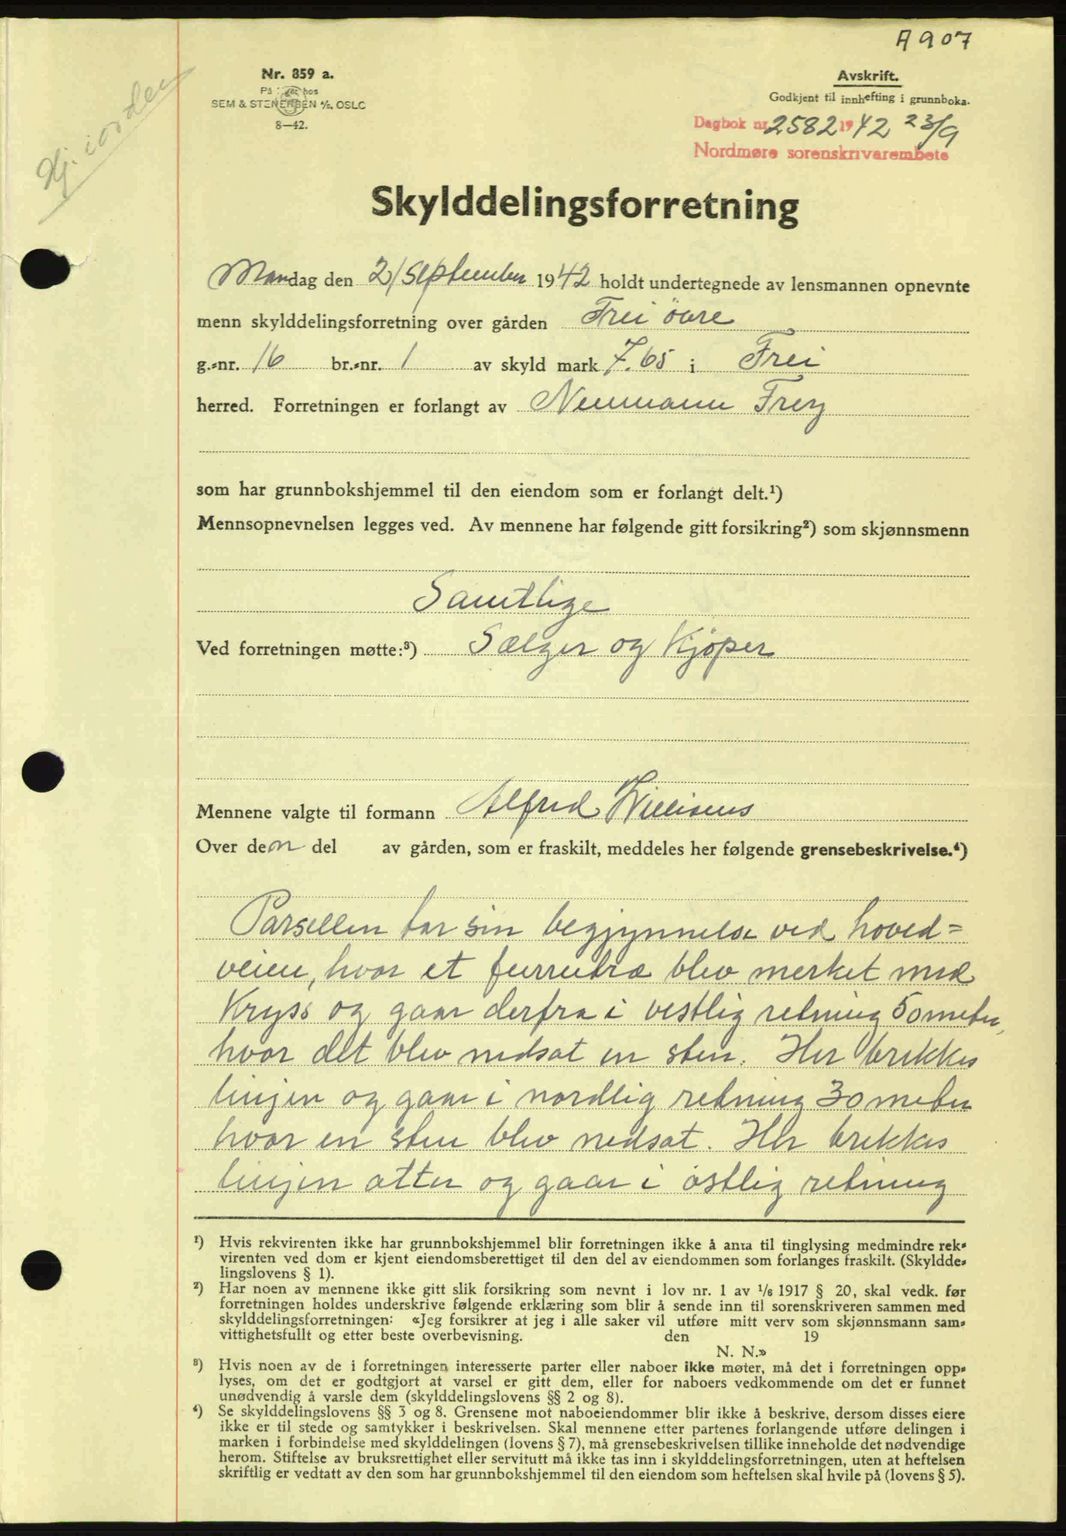 A 907
Nr. 859 a.
På lager hos
SEM & STENERSEN A/S, OSLO
8—42.
Avskrift.
Godkjent til innhefting i grunnboka.
Dagbok nr. 2582 1942 23/9
Nordmøre sorenskrivarembete
Skylddelingsforretning
Mandag den 2/ September 1942 holdt undertegnede av lensmannen opnevnte
menn skylddelingsforretning over gården Frei övre
g.-nr. 16 br.-nr. 1 av skyld mark 7.65 i Frei
herred. Forretningen er forlangt av Neumann Frey
som har grunnbokshjemmel til den eiendom som er forlangt delt.¹)
Mennsopnevnelsen legges ved. Av mennene har følgende gitt forsikring²) som skjønnsmenn
Samtlige
Ved forretningen møtte:³) Sælger og Kjöper
Mennene valgte til formann Alfred
Over den del av gården, som er fraskilt, meddeles her følgende grensebeskrivelse.⁴)
Parsellen tar sin begjynnelse ved hoved=
veien, hvor et furrutræ blev merket med
Kryss og gaar derfra i vestlig retning 50 meter,
hvor det blev nedsat en sten. Her brekkes
linjen og gaar i nordlig retning 30 meter
hvor en sten blev nedsat. Her brekkes
linjen atter og gaar i östlig retning
¹) Hvis rekvirenten ikke har grunnbokshjemmel blir forretningen ikke å anta til tinglysing medmindre rek-
virenten ved dom er kjent eiendomsberettiget til den del av eiendommen som forlanges fraskilt. (Skyldde-
lingslovens § 1).
²) Har noen av mennene ikke gitt slik forsikring som nevnt i lov nr. 1 av 1/6 1917 § 20, skal vedk. før
forretningen holdes underskrive følgende erklæring som blir å sende inn til sorenskriveren sammen med
skylddelingsforretningen: «Jeg forsikrer at jeg i alle saker vil utføre mitt verv som skjønnsmann sam-
vittighetsfullt og etter beste overbevisning. den 19
N. N.»
³) Hvis noen av de i forretningen interesserte parter eller naboer ikke møter, må det i forretningen opp-
lyses, om det er godtgjort at varsel er gitt dem, eller for naboers vedkommende om det er funnet
unødvendig å varsle dem (skylddelingslovens §§ 2 og 8).
⁴) Se skylddelingslovens §§ 3 og 8. Grensene mot naboeiendommer blir ikke å beskrive, dersom disses eiere
ikke er til stede og samtykker i beskrivelsen. Skal mennene etter partenes forlangende utføre delingen i
marken i forbindelse med skylddelingen (lovens § 7), må grensebeskrivelsen tillike inneholde det nødvendige
herom. Stiftelse av bruksrettighet eller servitutt må ikke tas inn i skylddelingsforretningen, uten at heftelsen
skriftlig er vedtatt av den som har grunnbokshjemmel til den eiendom som heftelsen skal hvile på (lovens § 5).